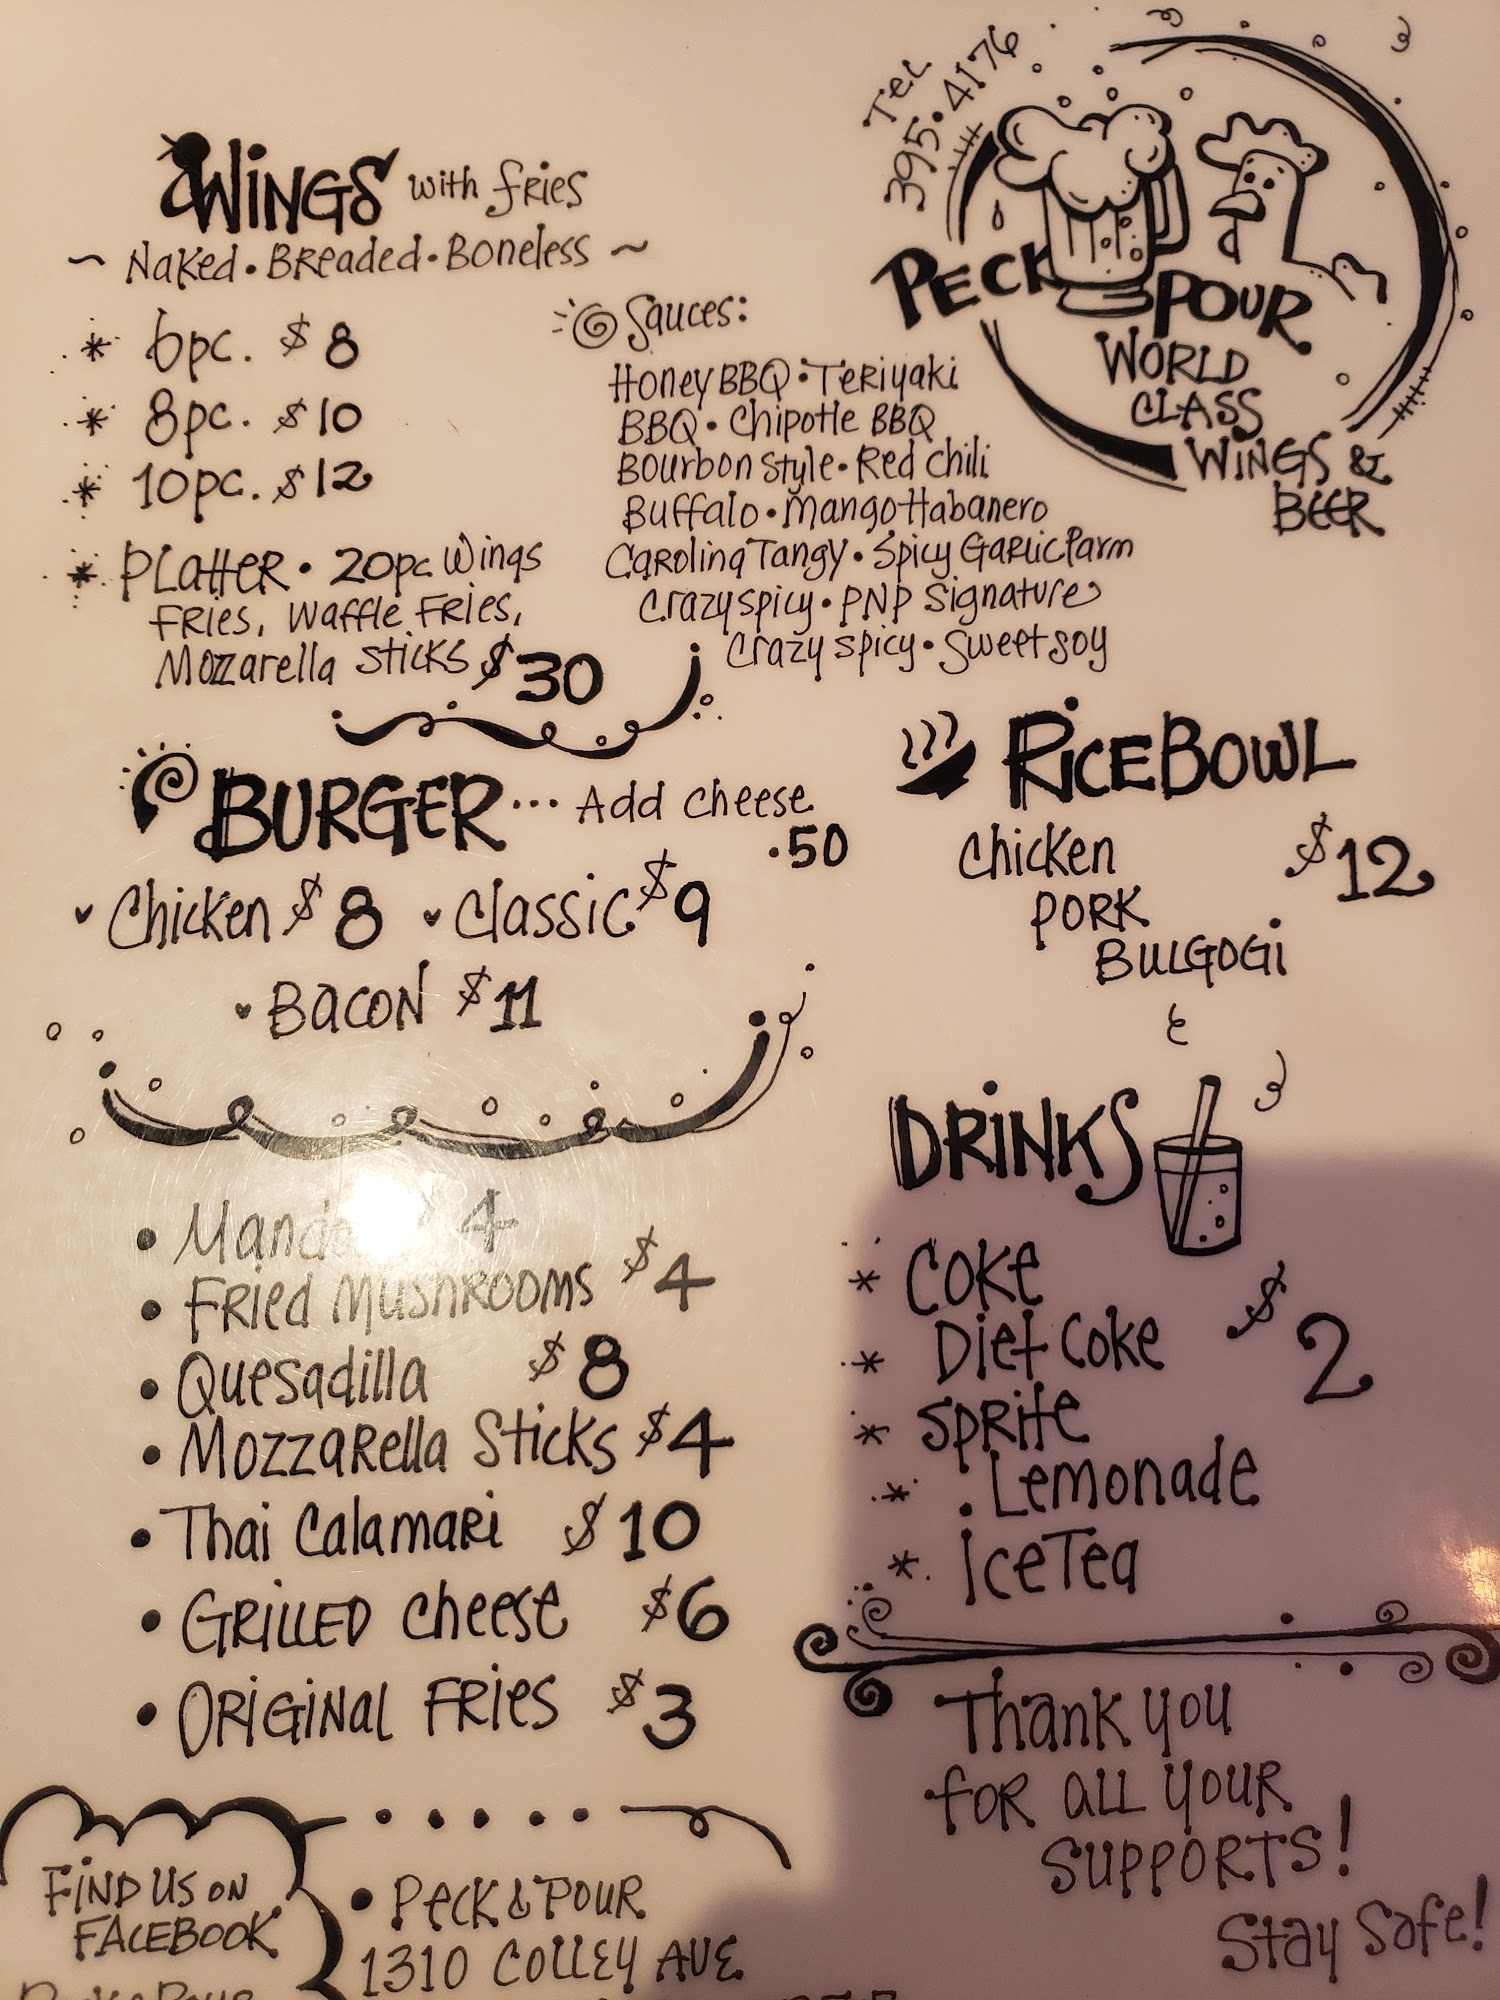 Wings with fries
~ Naked • Breaded • Boneless ~
* 6pc. $8
* 8pc. $10
* 10pc. $12
* Platter • 20pc Wings
Fries, Waffle Fries,
Mozzarella Sticks $30
Sauces:
Honey BBQ • Teriyaki
BBQ • Chipotle BBQ
Bourbon Style • Red Chili
Buffalo • Mango Habanero
Carolina Tangy • Spicy Garlic Parm
Crazy spicy • PNP Signature
Crazy spicy • Sweet soy
Tel
395•4176
Peck Pour
World
Class
Wings &
Beer
Burger... Add cheese
.50
Chicken $8 Classic $9
Bacon $11
Rice Bowl
Chicken $12
Pork
Bulgogi
• $4
• Fried Mushrooms $4
• Quesadilla $8
• Mozzarella Sticks $4
• Thai Calamari $10
• Grilled Cheese $6
• Original Fries $3
Drinks
* Coke
* Diet Coke $2
* Sprite
* Lemonade
* Ice Tea
Thank you
for all your
supports!
Stay Safe!
Find us on
Facebook
• Peck & Pour
1310 Colley Ave